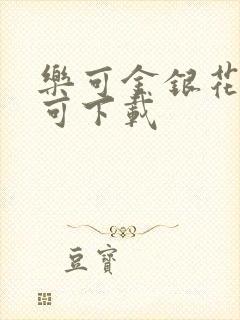 樂可金銀花
可下載
豆寶